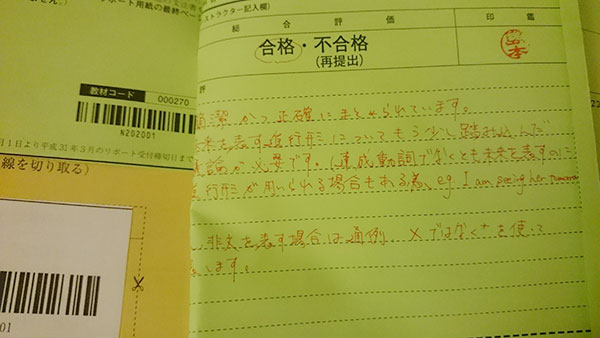 ポート用紙の最終ペー
教材コード
000270
N202001
月1日より平成31年3月のリポート受付締切日まで
線を切り取る)
01
ストラクター記入欄)
総合評価
印鑑
合格・不合格
(再提出)
山本
評
潔かつ正確にまとめられています。
未来を表す進行形についてもう少し踏み込んだ
論が必要です。(達成動詞でなくとも未来を表すのに
行形が用いられる場合もある為、eg. I am seeing her tomorrow
非文を表す場合は通例、×ではなく*を使って
います。